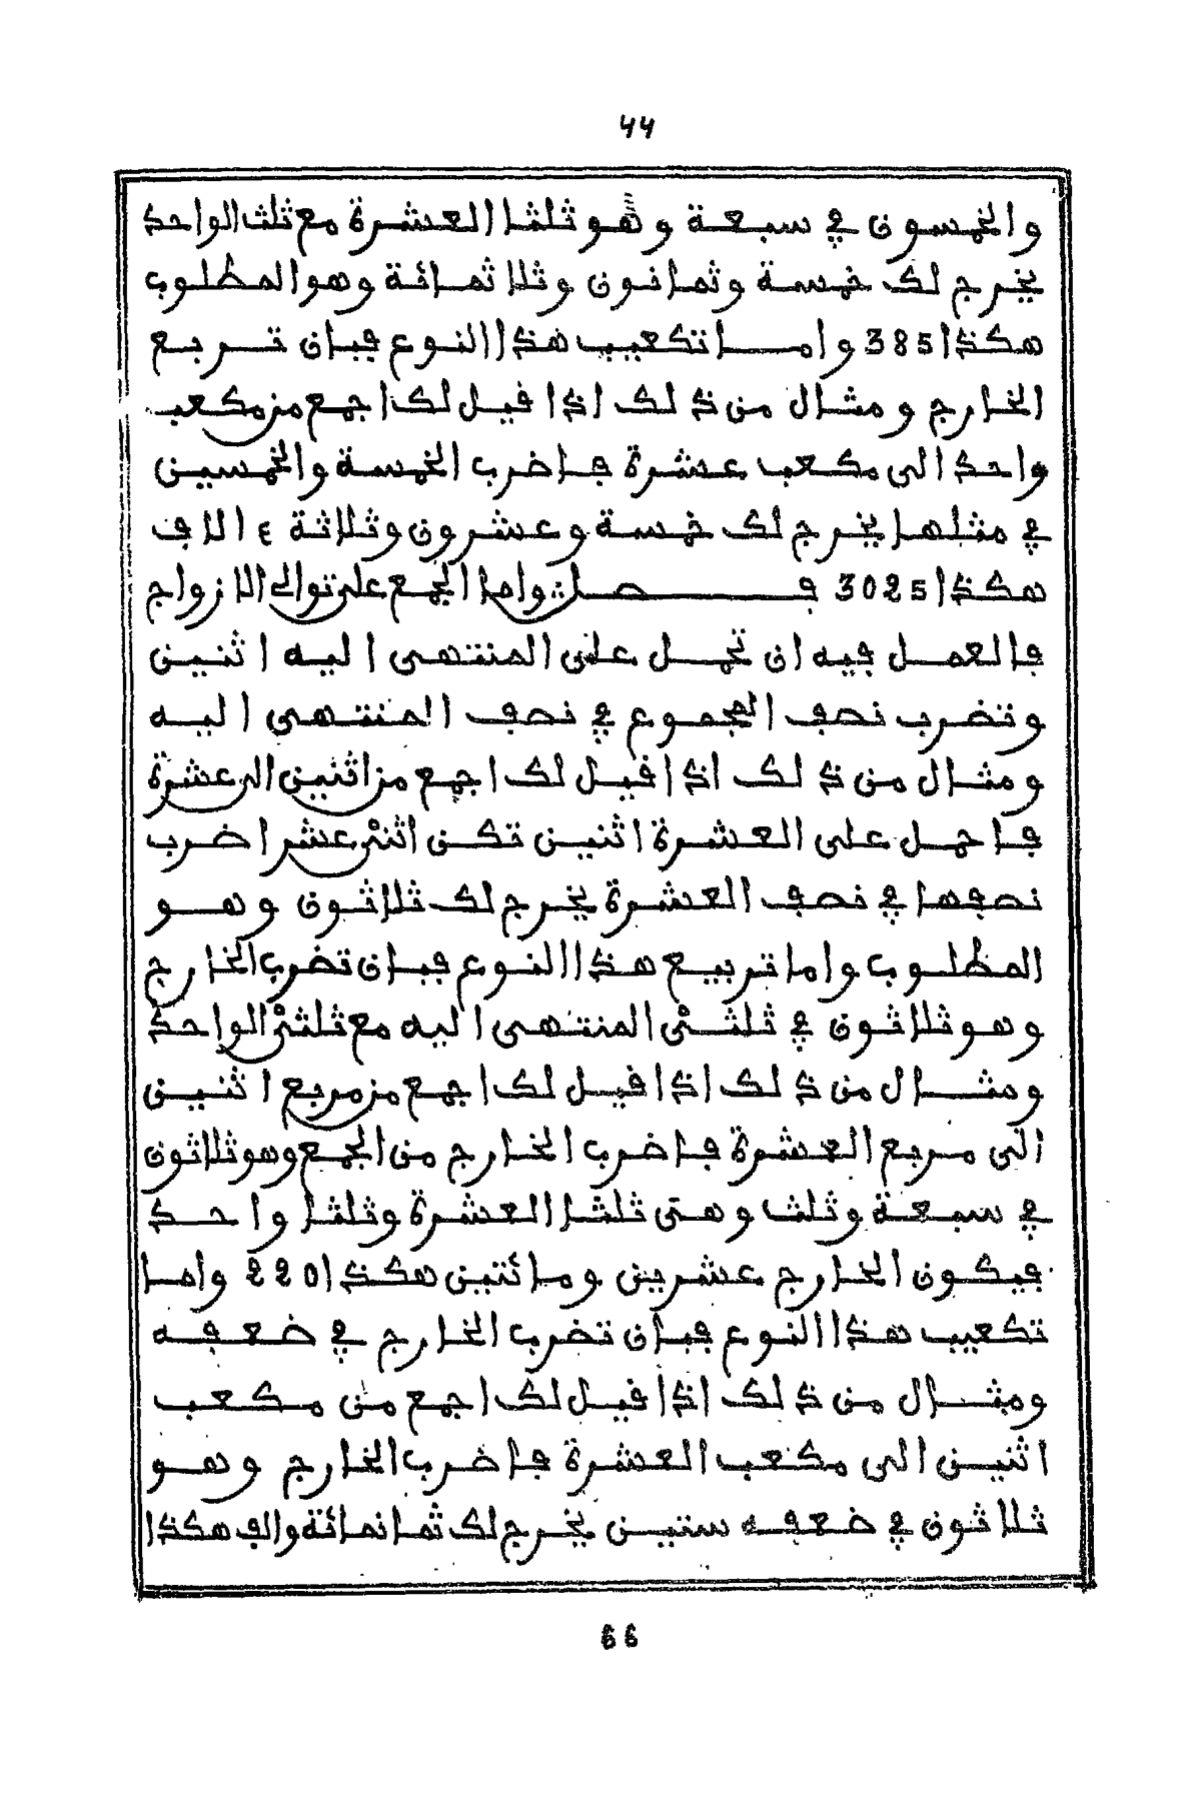 44
والخمسون في سبعة وهو ثلثا العشرة مع ثلث الواحد
يخرج لك خمسة وثمانون وثلاثمائة وهو المطلوب
هكذا 385 واما تكعيب هذا النوع فبان تربع
الخارج ومثال من ذلك اذا قيل لك اجمع من مكعب
واحد الى مكعب عشرة فاضرب الخمسة والخمسين
في مثلها يخرج لك خمسة وعشرون وثلاثة ءالاف
هكذا 3025 فصل واما الجمع على توالى الازواج
فالعمل فيه ان تحمل على المنتهى اليه اثنين
وتضرب نصف المجموع في نصف المنتهى اليه
ومثال من ذلك اذا قيل لك اجمع من اثنين الى عشرة
فاحمل على العشرة اثنين تكن اثنى عشر اضرب
نصفها في نصف العشرة يخرج لك ثلاثون وهو
المطلوب واما تربيع هذا النوع فبان تضرب الخارج
وهو ثلاثون في ثلثى المنتهى اليه مع ثلثى الواحد
ومثال من ذلك اذا قيل لك اجمع من مربع اثنين
الى مربع العشرة فاضرب الخارج من الجمع وهو ثلاثون
في سبعة وثلث وهى ثلثا العشرة وثلثا واحد
فيكون الخارج عشرين ومائتين هكذا 220 واما
تكعيب هذا النوع فبان تضرب الخارج في ضعفه
ومثال من ذلك اذا قيل لك اجمع من مكعب
اثنين الى مكعب العشرة فاضرب الخارج وهو
ثلاثون في ضعفه ستين يخرج لك ثمانمائة والف هكذا
66